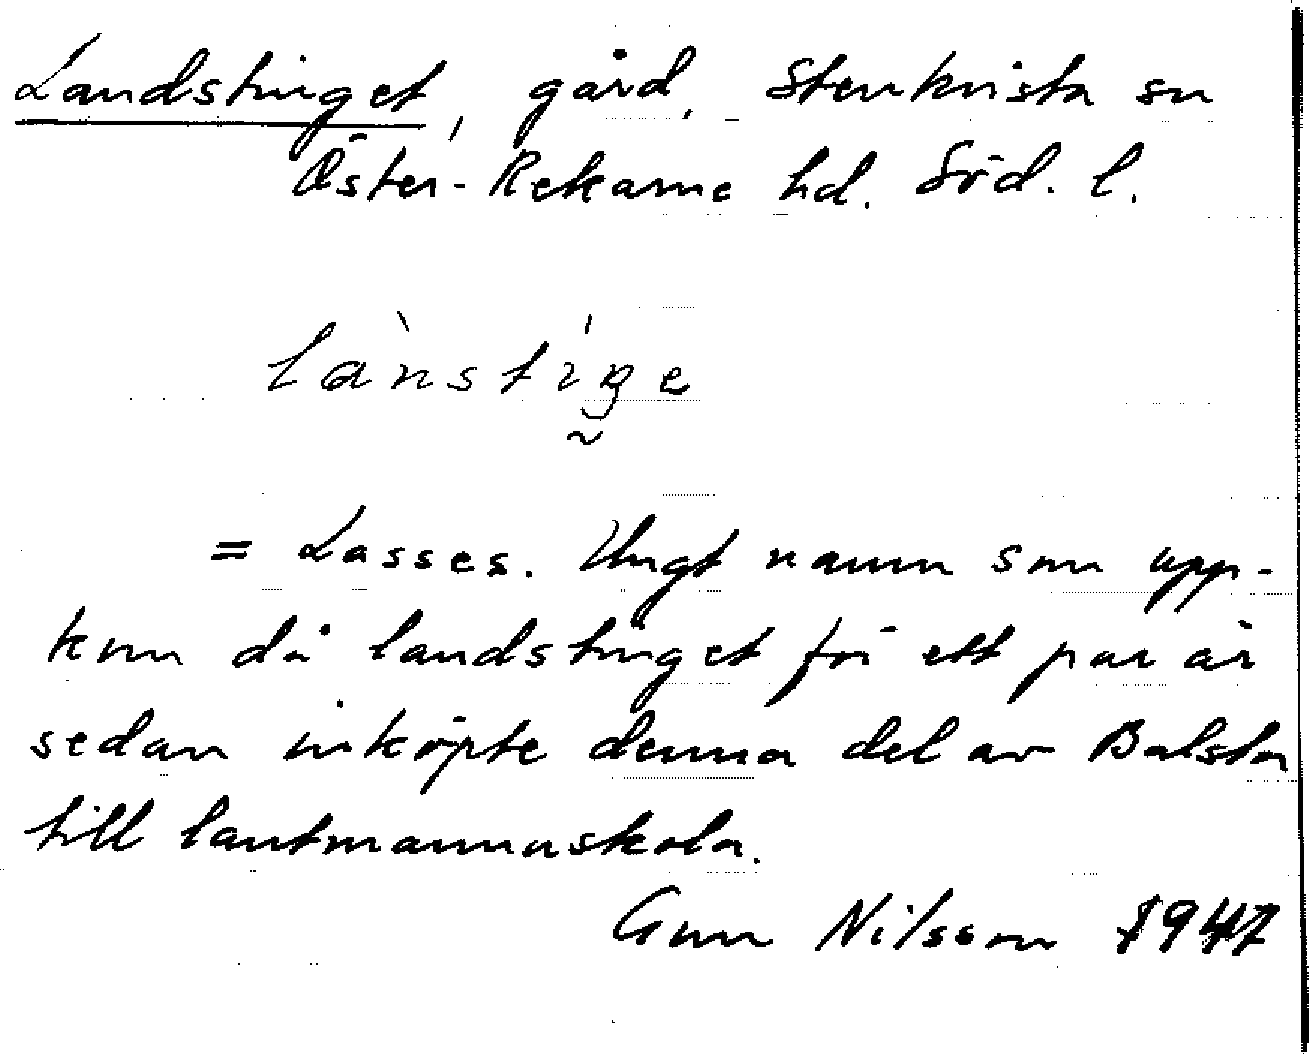 Landstinget, gård, Stenkvista sn
Öster-Rekarne hd. Söd. l.
lànstíŋe
= Lasses. Ungt namn som upp-
kom då landstinget för ett par år
sedan inköpte denna del av Balsta
till lantmannaskola.
Gun Nilsson 1947